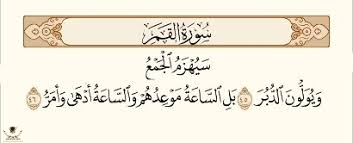 سُورَةُ القَمَرِ
سَيُهْزَمُ ٱلْجَمْعُ
وَيُوَلُّونَ ٱلدُّبُرَ ٤٥ بَلِ ٱلسَّاعَةُ مَوْعِدُهُمْ وَٱلسَّاعَةُ أَدْهَىٰ وَأَمَرُّ ٤٦